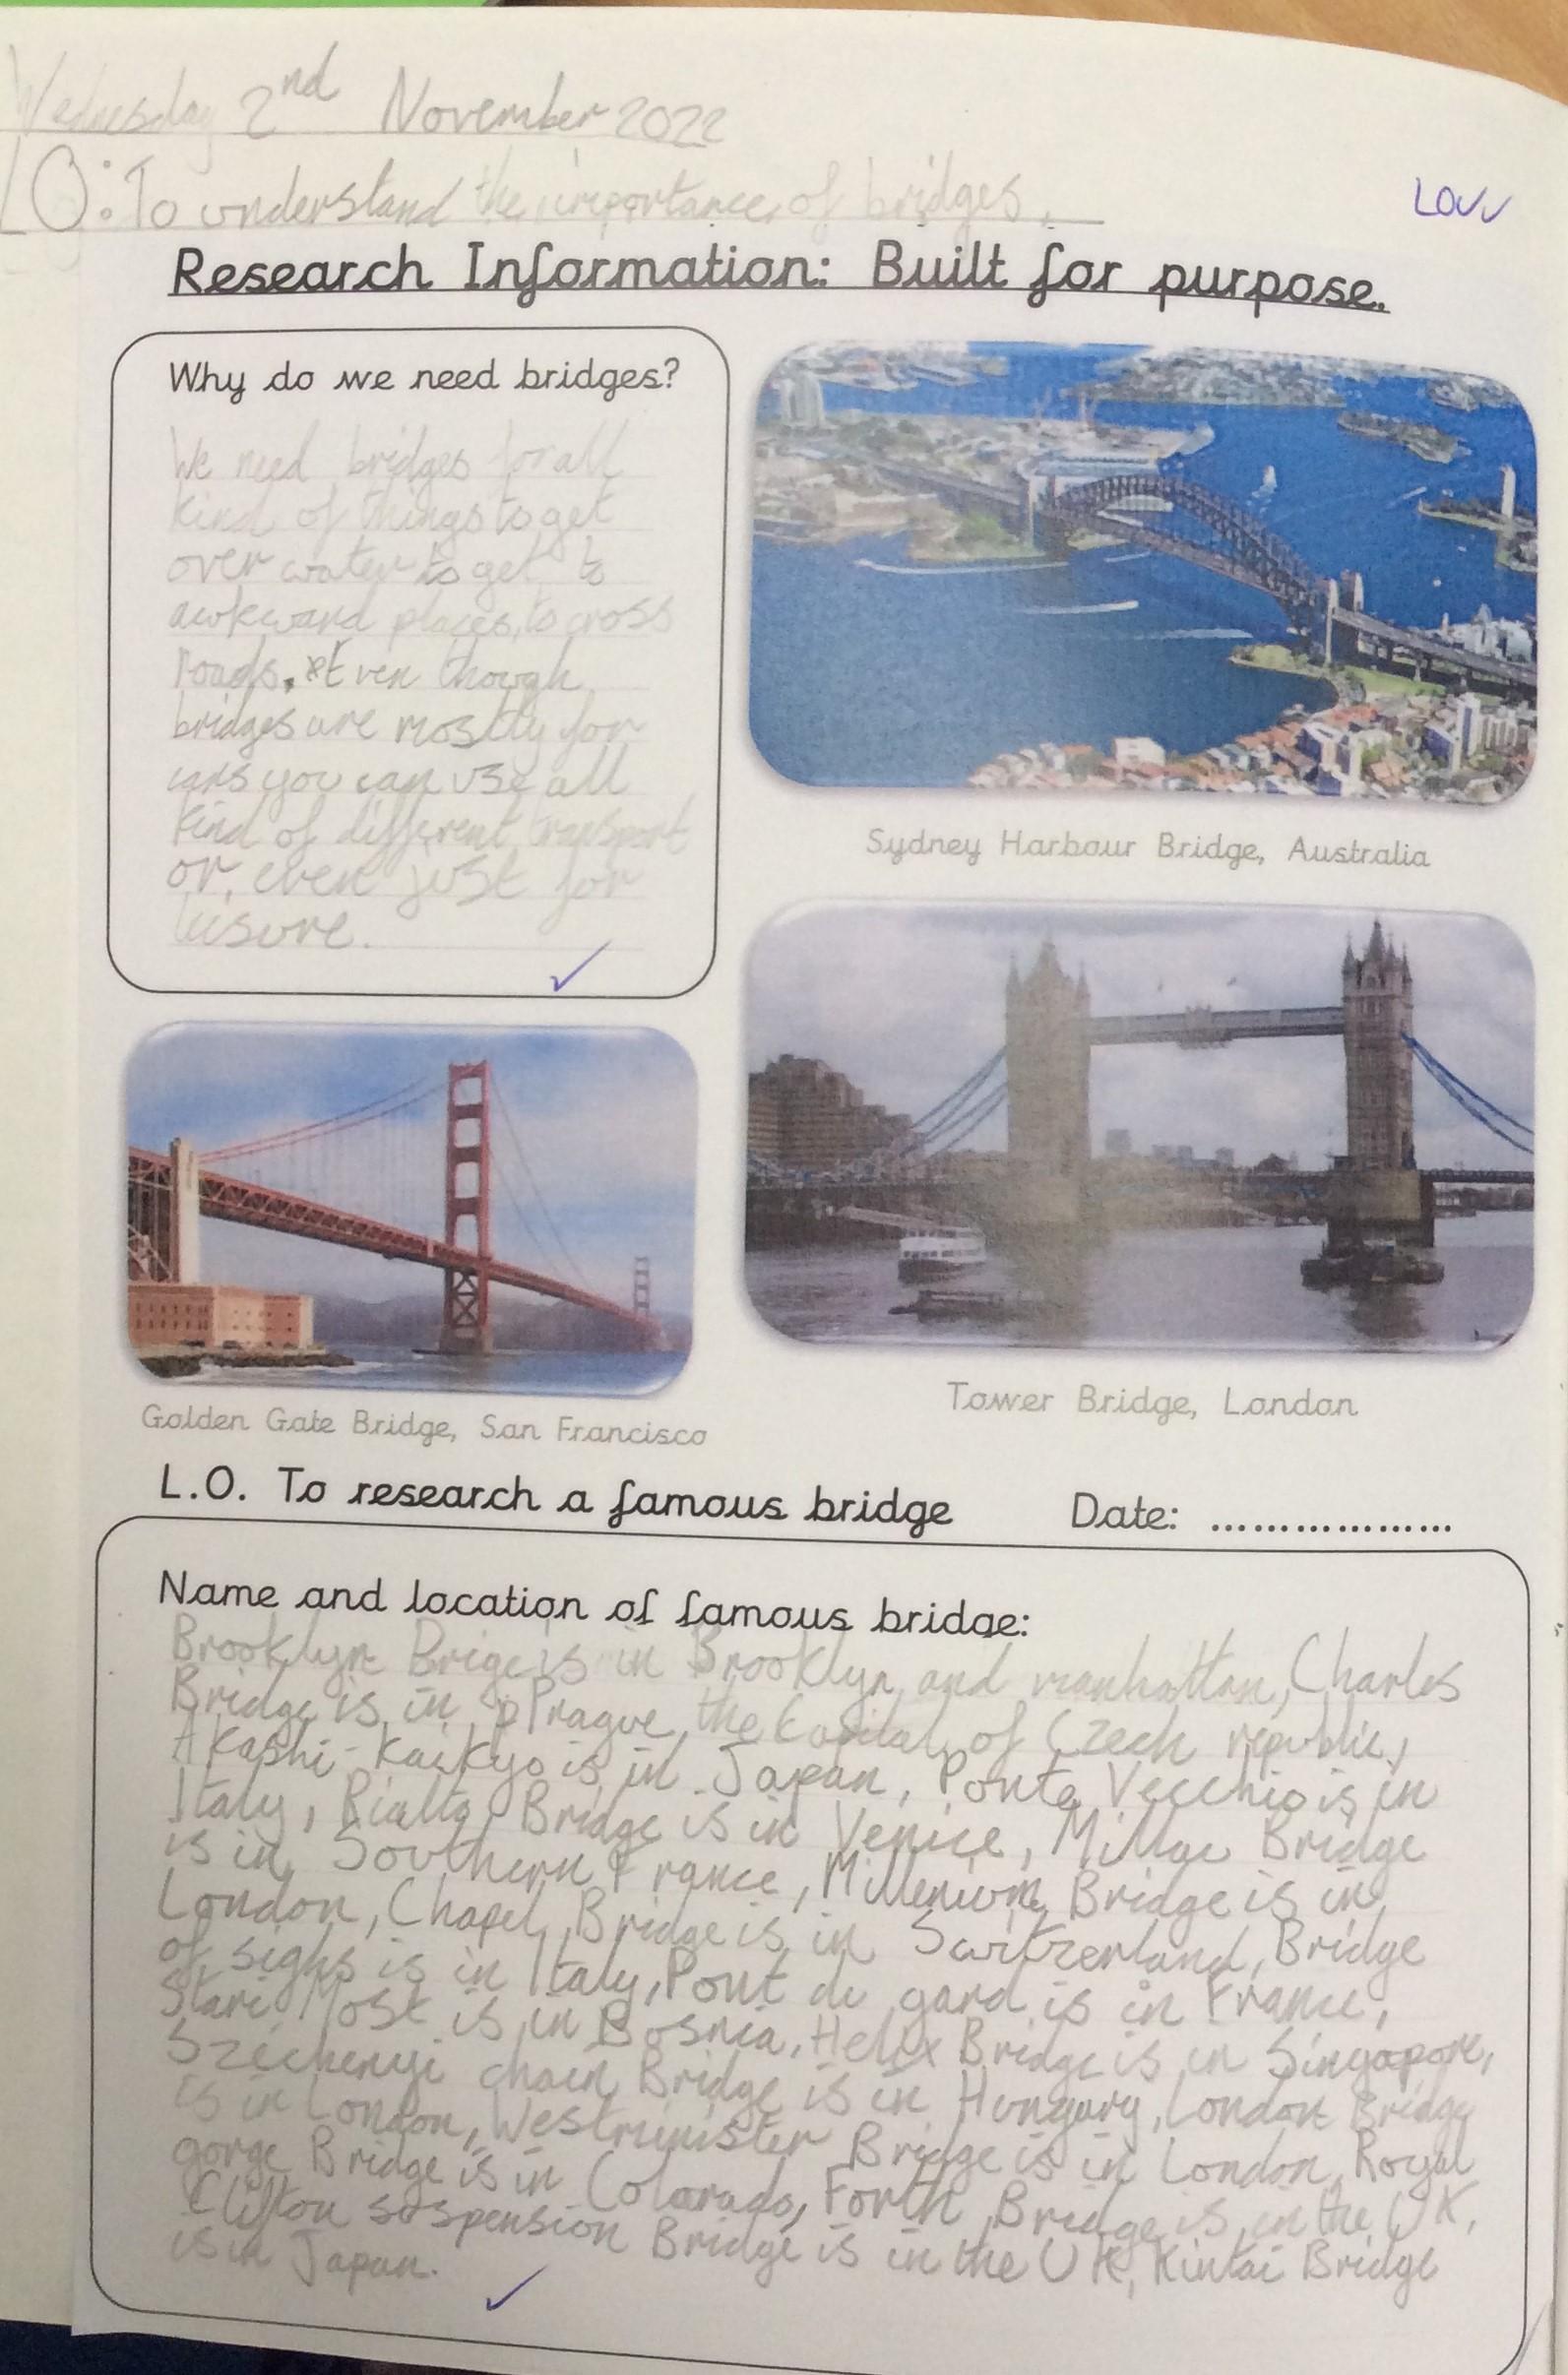 Wednesday 2nd November 2022
LO: To understand the importance of bridges.
LO✓✓
Research Information: Built for purpose.
Why do we need bridges?
We need bridges for all
kind of things to get
over water to get to
awkward places, to cross
roads. Even though
bridges are mostly for
cars you can use all
kind of different transport
or even just for
leisure.
Sydney Harbour Bridge, Australia
Tower Bridge, London
Golden Gate Bridge, San Francisco
L.O. To research a famous bridge Date: ..................
Name and location of famous bridge:
Brooklyn Brige is in Brooklyn and manhattan, Charles
Bridge is in Prague the Capital of Czech republic,
Akashi-Kaikyo is in Japan, Ponte Vecchio is in
Italy, Rialto Bridge is in Venice, Bridge
is in Southern France, Millenium Bridge is in
London, Chapel Bridge is in Switzerland, Bridge
of sighs is in Italy, Pont du gard is in France,
Stari Most is in Bosnia, Helix Bridge is in Singapore,
Széchenyi chain Bridge is in Hungary, London Bridge
is in London, Westminister Bridge is in London, Royal
gorge Bridge is in Colorado, Forth Bridge is in the UK,
Clifton suspension Bridge is in the UK, Kintai Bridge
is in Japan.